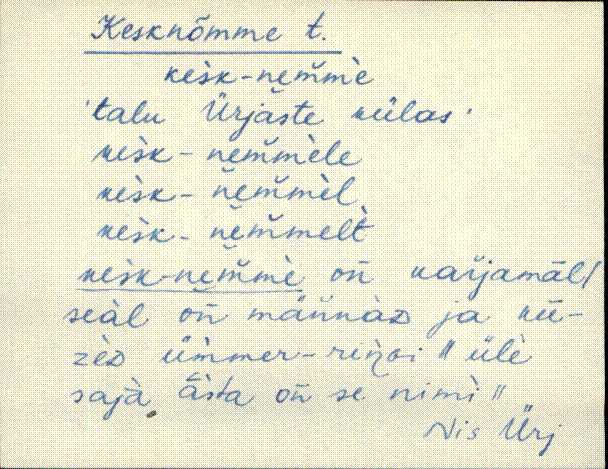 Kesknõmme t.
kèsk-nem̆mè
'talu Ürjaste külas'
kèsk-nem̆mèle
kèsk-nem̆mèl
kèsk-nem̆melt
kèsk-nem̆mè on̆ karjamāl/
seàl on̆ män̆nàD ja kū-
zèD ümmer-rin̆Gi // ülè
sajà āsta on̆ se nimì //
Nis Ürj